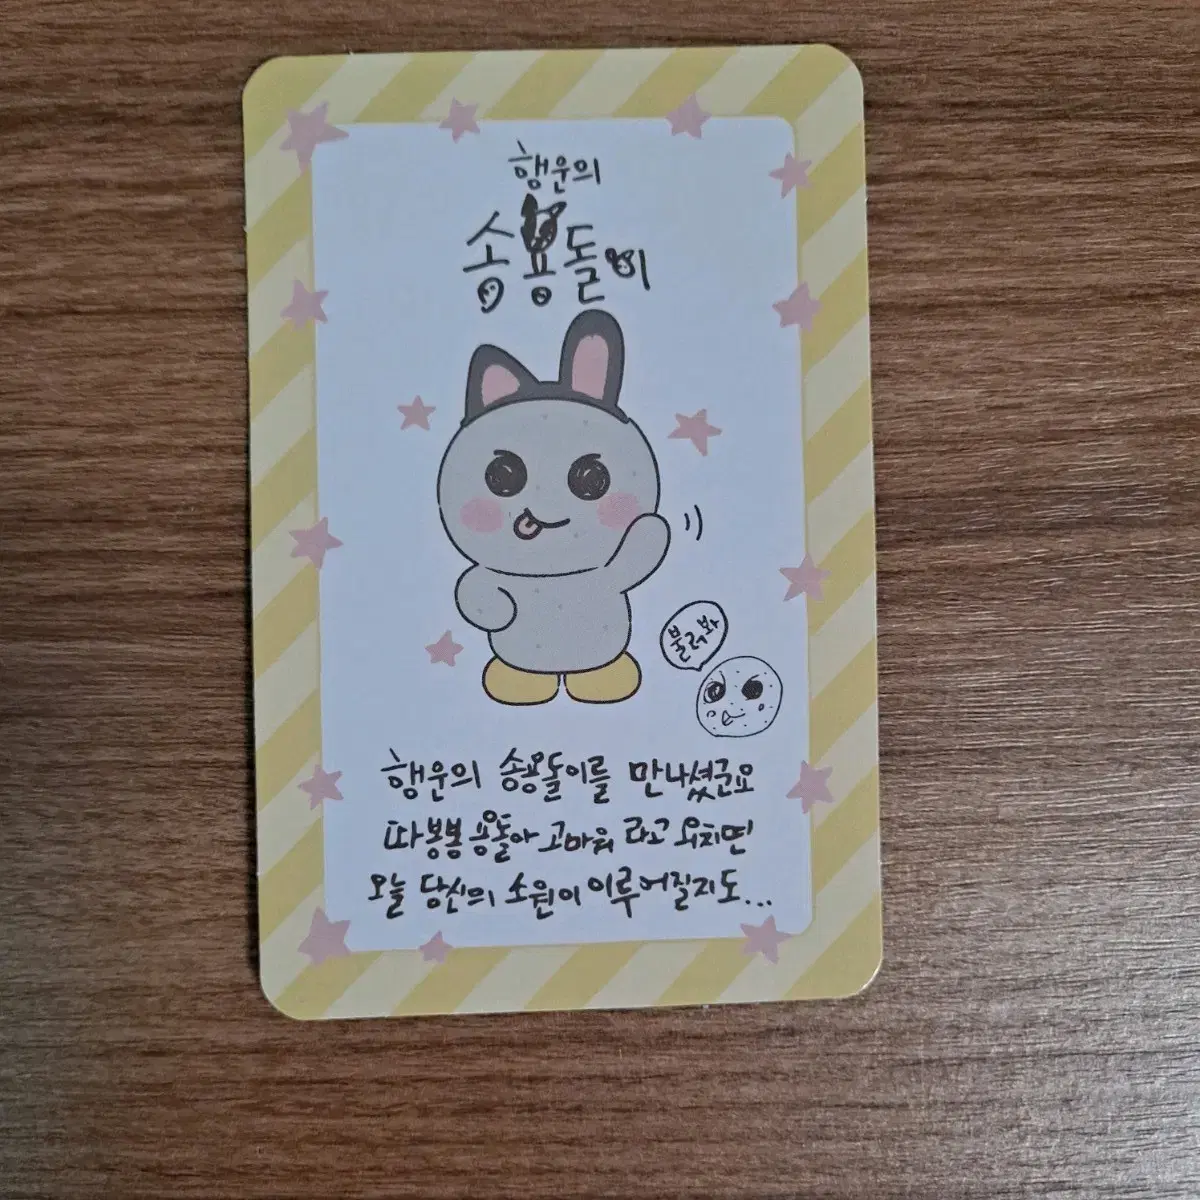 행운의
송용돌이
불러봐
행운의 송용돌이를 만나셨군요
따봉봉 용돌아 고마워 라고 외치면
오늘 당신의 소원이 이루어질지도...